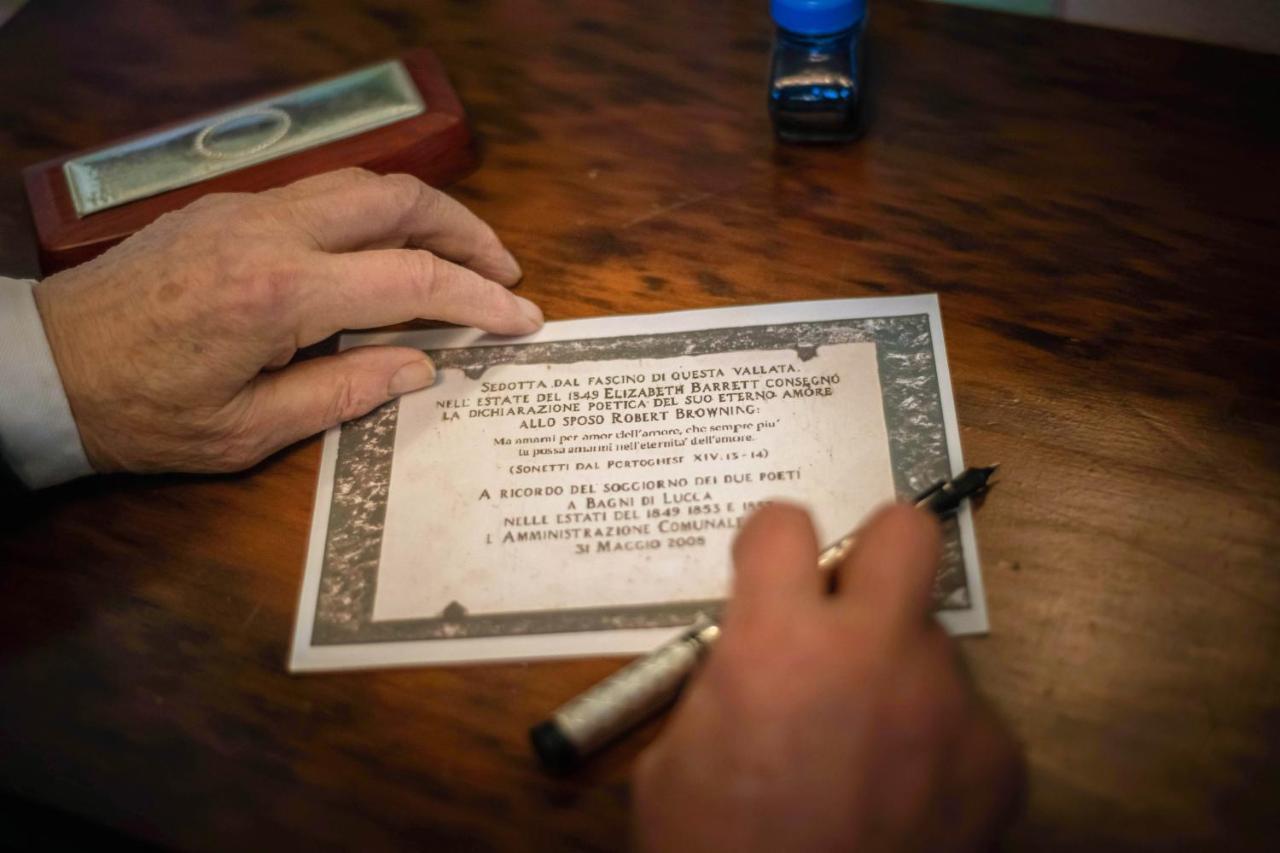 SEDOTTA DAL FASCINO DI QUESTA VALLATA.
NELL' ESTATE DEL 1849 ELIZABETH BARRETT CONSEGNÓ
LA DICHIARAZIONE POETICA DEL SUO ETERNO AMORE
ALLO SPOSO ROBERT BROWNING:
Ma amami per amor dell'amore, che sempre piu'
tu possa amarmi nell'eternita' dell'amore.
(SONETTI DAL PORTOGHESE XIV. 13 - 14)
A RICORDO DEL SOGGIORNO DEI DUE POETI
A BAGNI DI LUCCA
NELLE ESTATI DEL 1849 1853 E
L AMMINISTRAZIONE COMUNALE
31 MAGGIO 2008